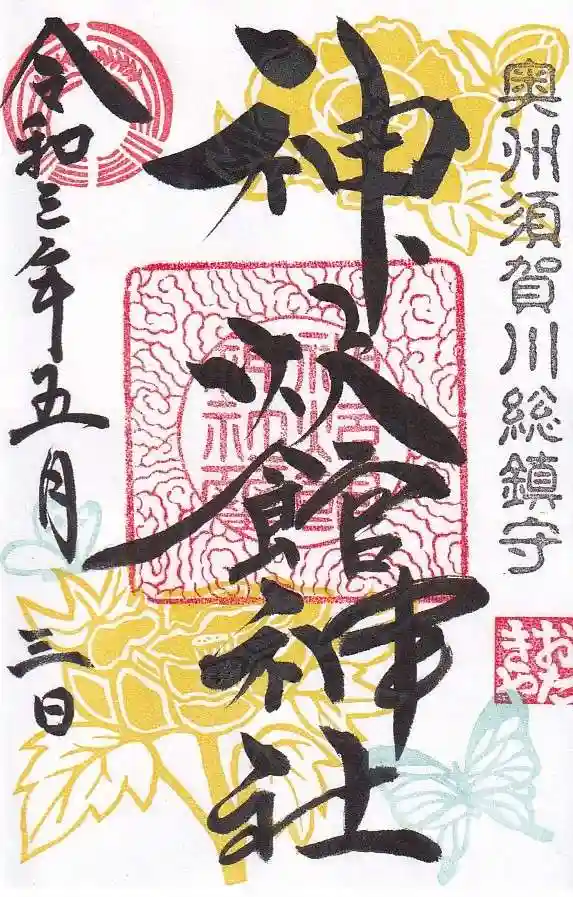 奥州須賀川総鎮守
神炊館神社
令和三年五月三日